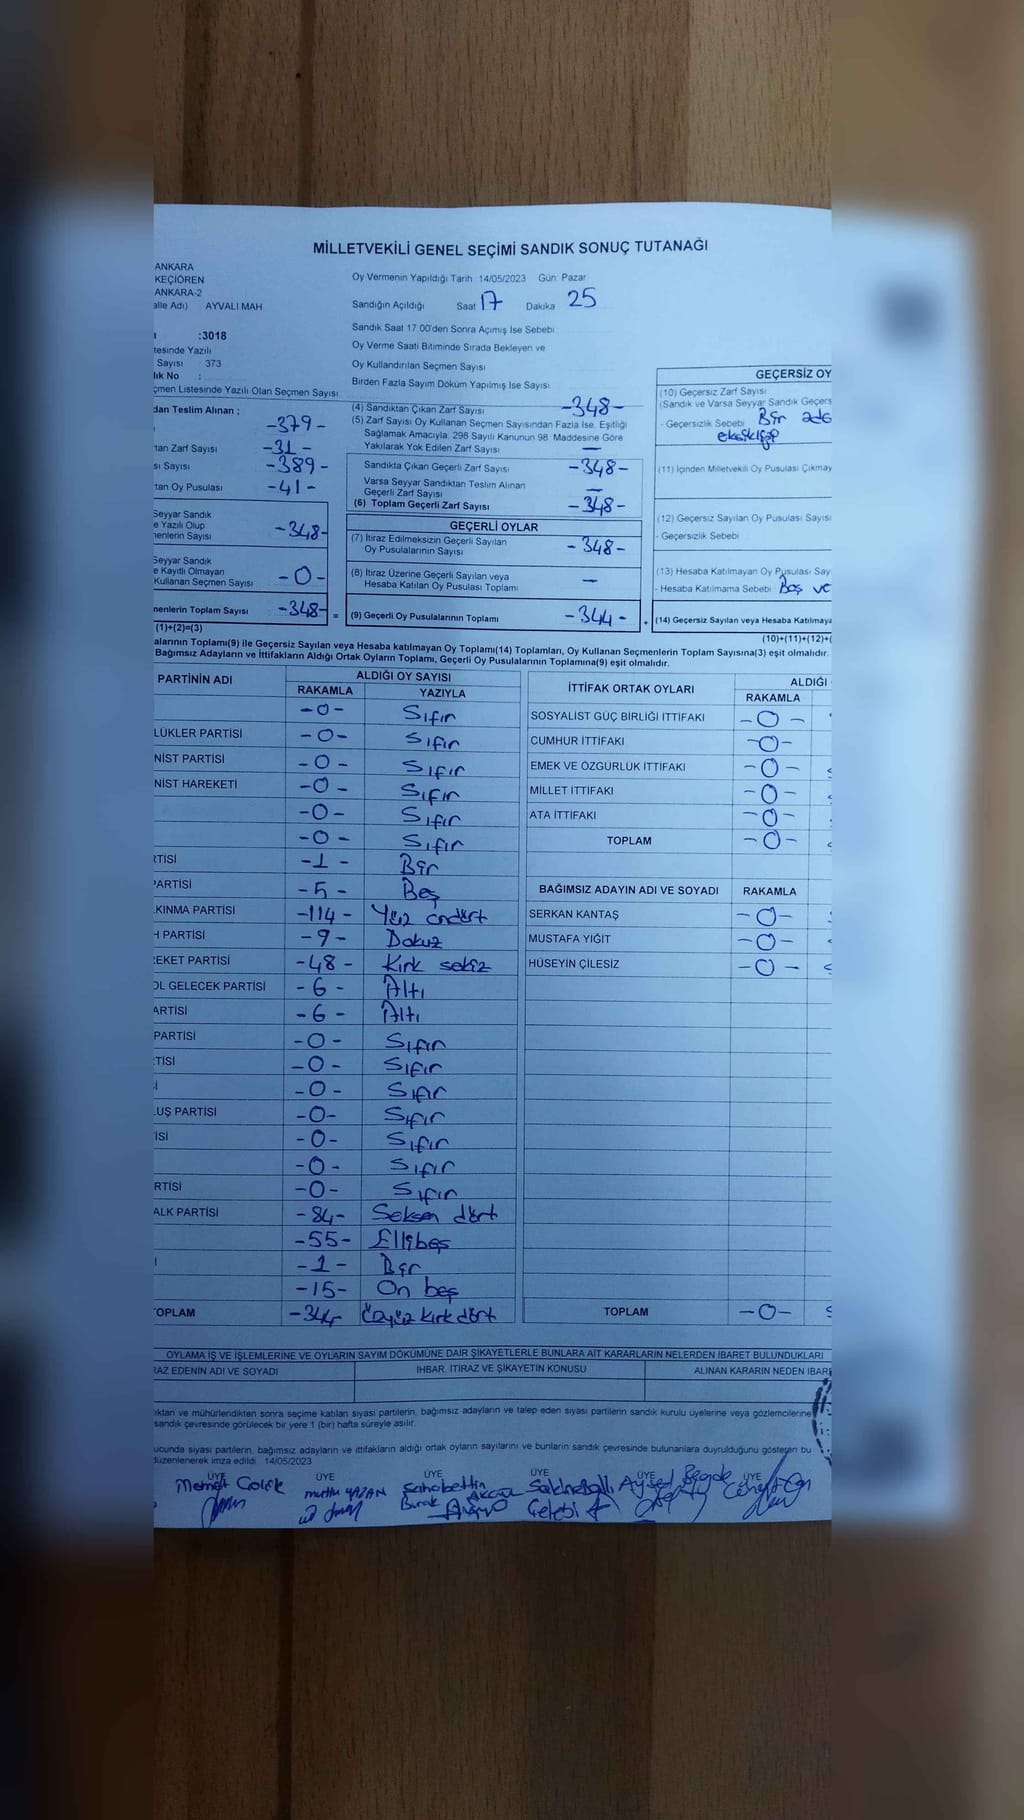 MİLLETVEKİLİ GENEL SEÇİMİ SANDIK SONUÇ TUTANAĞI
ANKARA
KEÇİÖREN
ANKARA-2
alle Adı) AYVALI MAH
Oy Vermenin Yapıldığı Tarih 14/05/2023 Gün: Pazar
Sandığın Açıldığı Saat 17 Dakika 25
Sandık Saat 17 00'den Sonra Açımış İse Sebebi
Oy Verme Saati Bitiminde Sırada Bekleyen ve
Oy Kullandırılan Seçmen Sayısı
Birden Fazla Sayım Döküm Yapılmış İse Sayısı
:3018
tesinde Yazılı
Sayısı : 373
lık No :
çmen Listesinde Yazılı Olan Seçmen Sayısı
dan Teslim Alınan ;
-379-
tan Zarf Sayısı -31-
sı Sayısı -389-
tan Oy Pusulası -41-
Seyyar Sandık
e Yazılı Olup
menlerin Sayısı -348-
Seyyar Sandık
e Kayıtlı Olmayan
Kullanan Seçmen Sayısı -0-
menlerin Toplam Sayısı -348- =
(1)+(2)=(3)
(4) Sandıktan Çıkan Zarf Sayısı -348-
(5) Zarf Sayısı Oy Kullanan Seçmen Sayısından Fazla İse, Eşitliği
Sağlamak Amacıyla, 298 Sayılı Kanunun 98 Maddesine Göre
Yakılarak Yok Edilen Zarf Sayısı —
Sandıkta Çıkan Geçerli Zarf Sayısı -348-
Varsa Seyyar Sandıktan Teslim Alınan
Geçerli Zarf Sayısı —
(6) Toplam Geçerli Zarf Sayısı -348-
GEÇERLİ OYLAR
(7) İtiraz Edilmeksizin Geçerli Sayılan
Oy Pusulalarının Sayısı -348-
(8) İtiraz Üzerine Geçerli Sayılan veya
Hesaba Katılan Oy Pusulası Toplamı —
(9) Geçerli Oy Pusulalarının Toplamı -344- +
GEÇERSİZ OY
(10) Geçersiz Zarf Sayısı
(Sandık ve Varsa Seyyar Sandık Geçers
- Geçersizlik Sebebi Bir
(11) İçinden Milletvekili Oy Pusulası Çıkmay
(12) Geçersiz Sayılan Oy Pusulası Sayısı
- Geçersizlik Sebebi
(13) Hesaba Katılmayan Oy Pusulası Say
- Hesaba Katılmama Sebebi Beş ve
(14) Geçersiz Sayılan veya Hesaba Katılmaya
(10)+(11)+(12)+(
alarının Toplamı(9) ile Geçersiz Sayılan veya Hesaba katılmayan Oy Toplamı(14) Toplamları, Oy Kullanan Seçmenlerin Toplam Sayısına(3) eşit olmalıdır.
Bağımsız Adayların ve İttifakların Aldığı Ortak Oyların Toplamı, Geçerli Oy Pusulalarının Toplamına(9) eşit olmalıdır.
PARTİNİN ADI ALDIĞI OY SAYISI
RAKAMLA YAZIYLA
-0- Sıfır
LÜKLER PARTİSİ -0- Sıfır
NİST PARTİSİ -0- Sıfır
NİST HAREKETİ -0- Sıfır
-0- Sıfır
-0- Sıfır
RTİSİ -1- Bir
PARTİSİ -5- Beş
KINMA PARTİSİ -114- Yüz ondört
H PARTİSİ -9- Dokuz
EKET PARTİSİ -48- Kırk sekiz
OL GELECEK PARTİSİ -6- Altı
ARTİSİ -6- Altı
PARTİSİ -0- Sıfır
TİSİ -0- Sıfır
İ -0- Sıfır
LUŞ PARTİSİ -0- Sıfır
İSİ -0- Sıfır
-0- Sıfır
RTİSİ -0- Sıfır
ALK PARTİSİ -84- Seksen dört
-55- Ellibeş
İ -1- Bir
-15- On beş
OPLAM -344- Üçyüz kırk dört
İTTİFAK ORTAK OYLARI ALDIĞI
RAKAMLA
SOSYALİST GÜÇ BİRLİĞİ İTTİFAKI -0-
CUMHUR İTTİFAKI -0-
EMEK VE ÖZGÜRLÜK İTTİFAKI -0-
MİLLET İTTİFAKI -0-
ATA İTTİFAKI -0-
TOPLAM -0-
BAĞIMSIZ ADAYIN ADI VE SOYADI RAKAMLA
SERKAN KANTAŞ -0-
MUSTAFA YİĞİT -0-
HÜSEYİN ÇİLESİZ -0-
TOPLAM -0-
OYLAMA İŞ VE İŞLEMLERİNE VE OYLARIN SAYIM DÖKÜMÜNE DAİR ŞİKAYETLERLE BUNLARA AİT KARARLARIN NELERDEN İBARET BULUNDUKLARI
RAZ EDENİN ADI VE SOYADI İHBAR, İTİRAZ VE ŞİKAYETİN KONUSU ALINAN KARARIN NEDEN İBARE
ıktan ve mühürlendikten sonra seçime katılan siyasi partilerin, bağımsız adayların ve talep eden siyasi partilerin sandık kurulu üyelerine veya gözlemcilerine
sandık çevresinde görülecek bir yere 1 (bir) hafta süreyle asılır.
ucunda siyasi partilerin, bağımsız adayların ve ittifakların aldığı ortak oyların sayılarını ve bunların sandık çevresinde bulunanlara duyrulduğunu gösteren bu
düzenlenerek imza edildi. 14/05/2023
ÜYE ÜYE ÜYE ÜYE ÜYE ÜYE